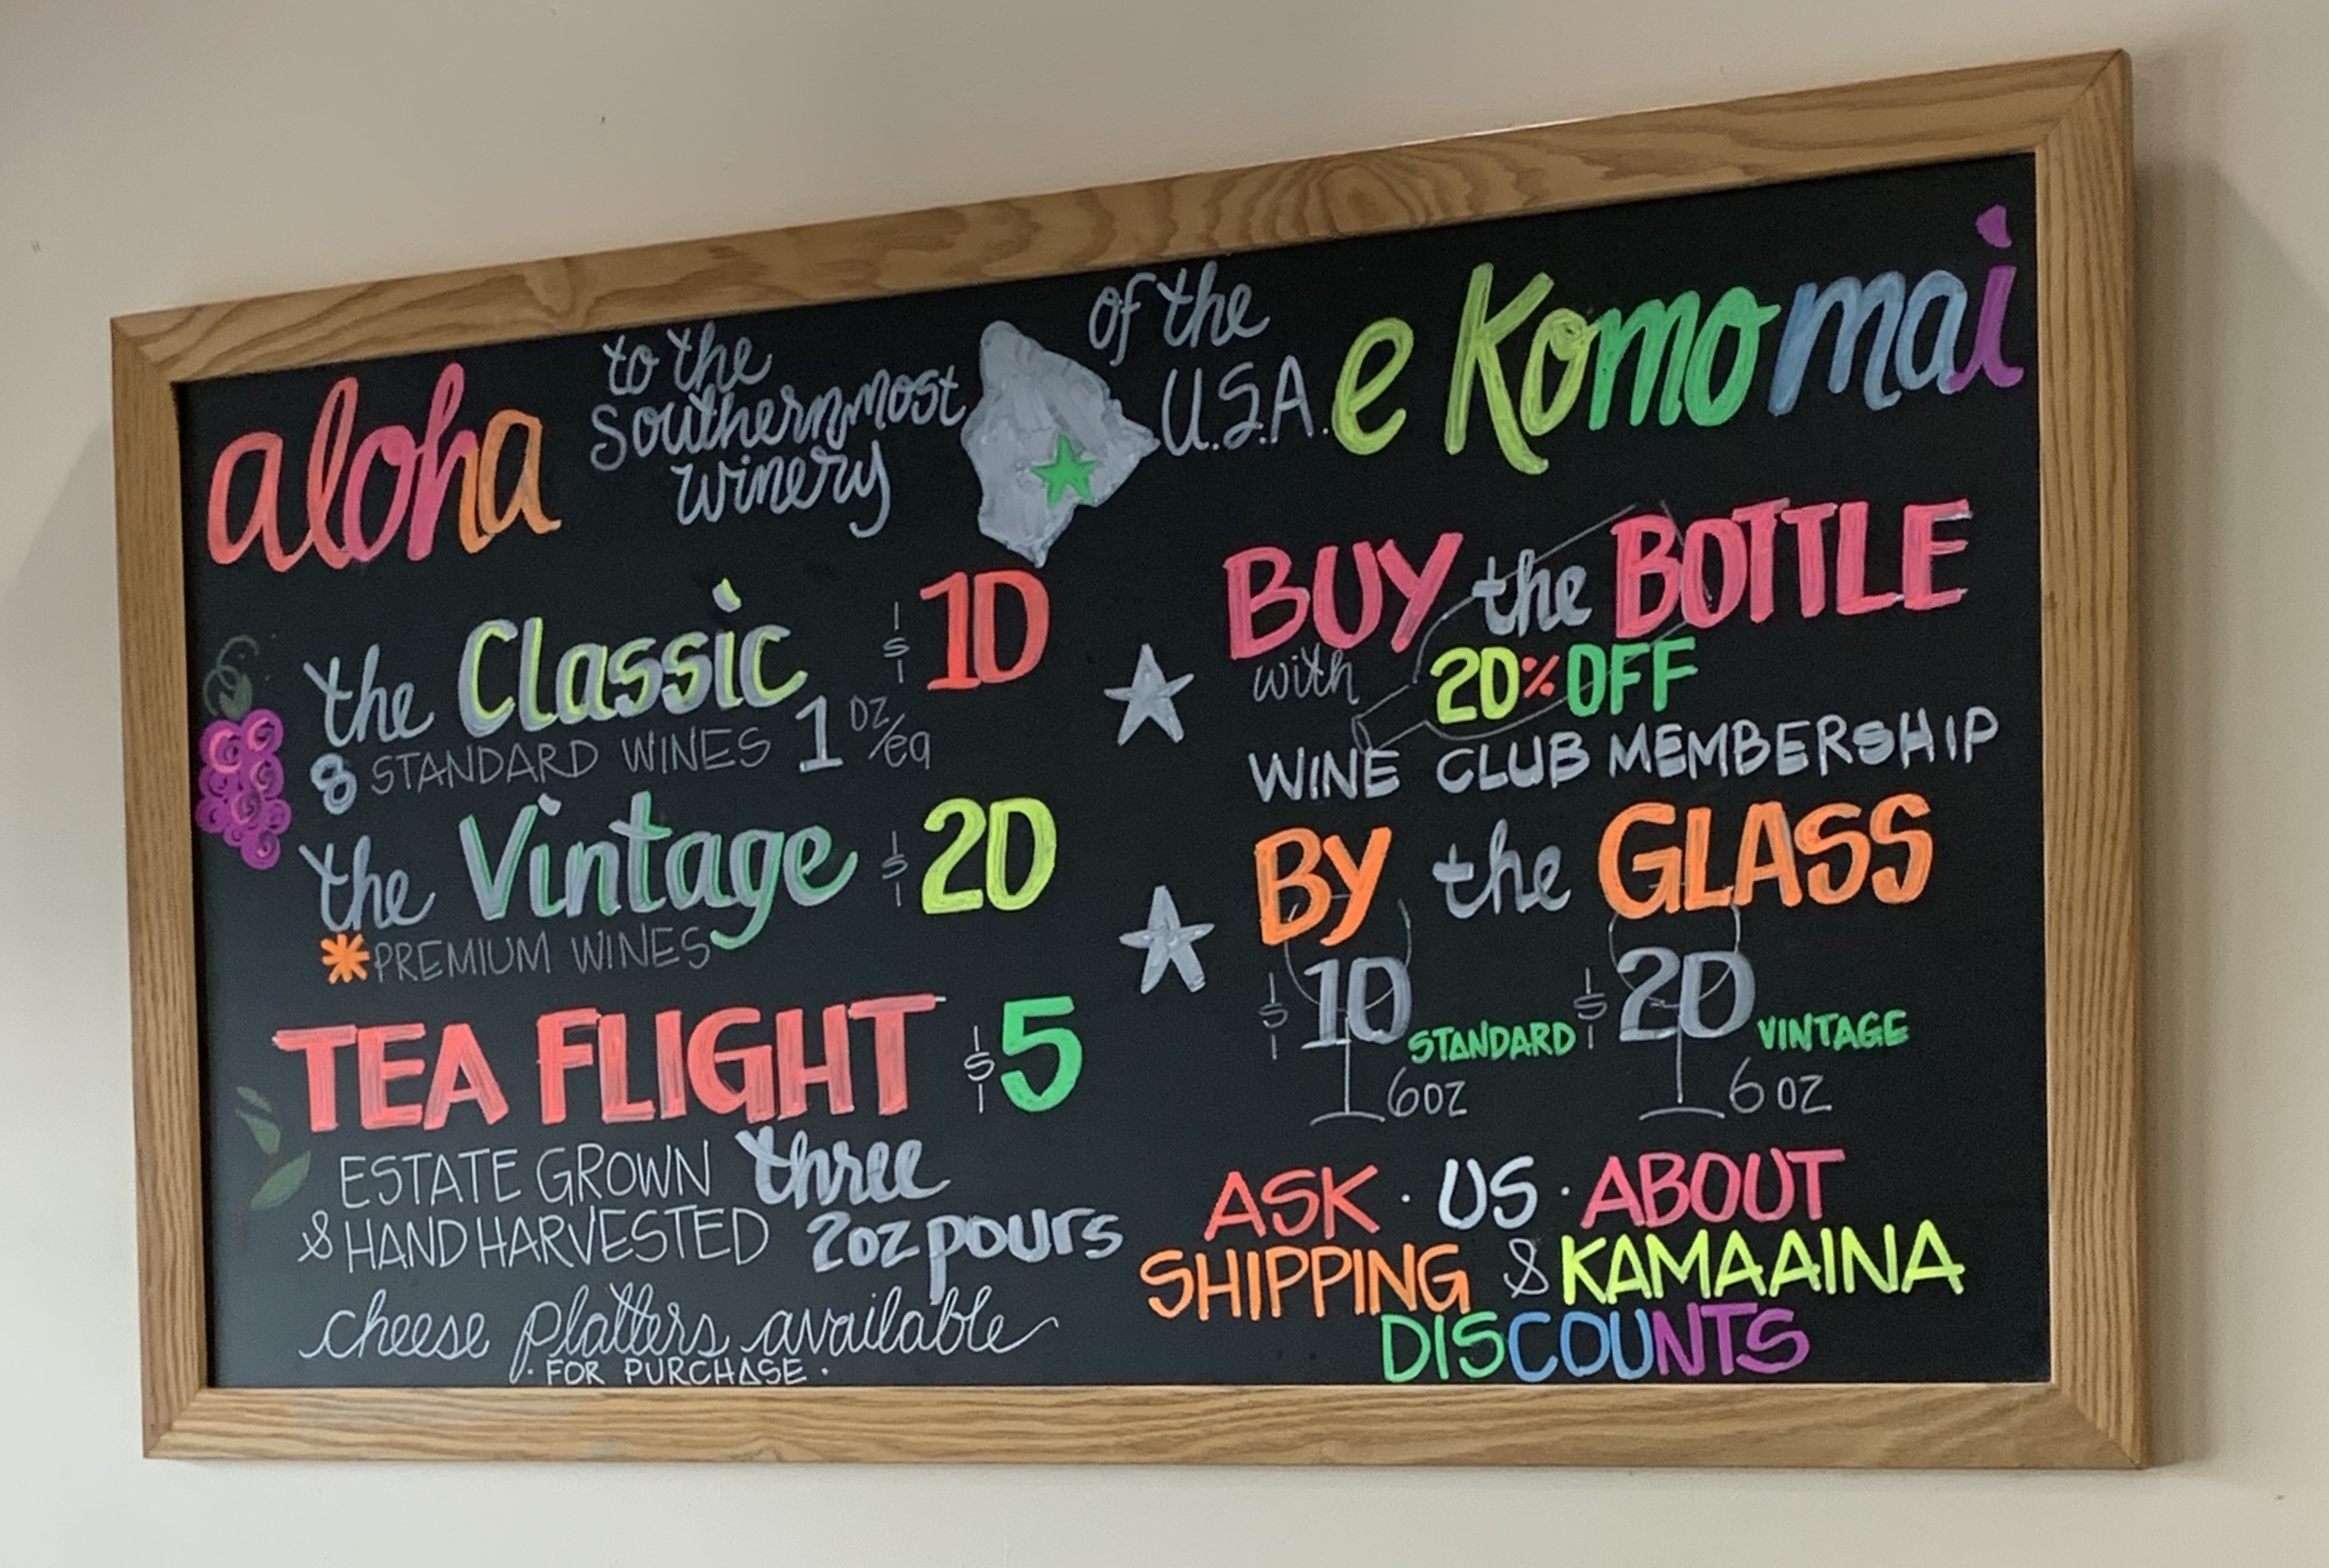 aloha to the
Southernmost
winery
of the
U.S.A. e Komo mai
the Classic $10
8 STANDARD WINES 1 OZ/ea
the Vintage $20
*PREMIUM WINES
TEA FLIGHT $5
ESTATE GROWN three
& HAND HARVESTED 2oz pours
cheese platters available
· FOR PURCHASE ·
BUY the BOTTLE
with 20% OFF
WINE CLUB MEMBERSHIP
BY the GLASS
$10 STANDARD $20 VINTAGE
6OZ 6 OZ
ASK · US · ABOUT
SHIPPING & KAMAAINA
DISCOUNTS